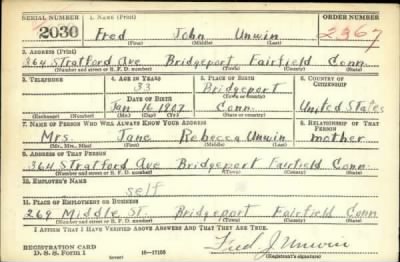 SERIAL NUMBER 1. NAME (Print) ORDER NUMBER
2030 Fred John Unwin 2967
(First) (Middle) (Last)
2. ADDRESS (Print)
364 Stratford Ave Bridgeport Fairfield Conn.
(Number and street or R. F. D. number) (Town) (County) (State)
3. TELEPHONE 4. AGE IN YEARS 5. PLACE OF BIRTH 6. COUNTRY OF CITIZENSHIP
33 Bridgeport
(Town or county)
DATE OF BIRTH
Jan 16 1907 Conn. United States
(Exchange) (Number) (Mo.) (Day) (Yr.) (State or country)
7. NAME OF PERSON WHO WILL ALWAYS KNOW YOUR ADDRESS 8. RELATIONSHIP OF THAT PERSON
Mrs. Jane Rebecca Unwin mother
(Mr., Mrs., Miss) (First) (Middle) (Last)
9. ADDRESS OF THAT PERSON
364 Stratford Ave Bridgeport Fairfield Conn.
(Number and street or R. F. D. number) (Town) (County) (State)
10. EMPLOYER'S NAME
self
11. PLACE OF EMPLOYMENT OR BUSINESS
269 Middle St. Bridgeport Fairfield Conn
(Number and street or R. F. D. number) (Town) (County) (State)
I AFFIRM THAT I HAVE VERIFIED ABOVE ANSWERS AND THAT THEY ARE TRUE.
REGISTRATION CARD
D. S. S. Form 1 16-17105 Fred J Unwin
(over) (Registrant's signature)